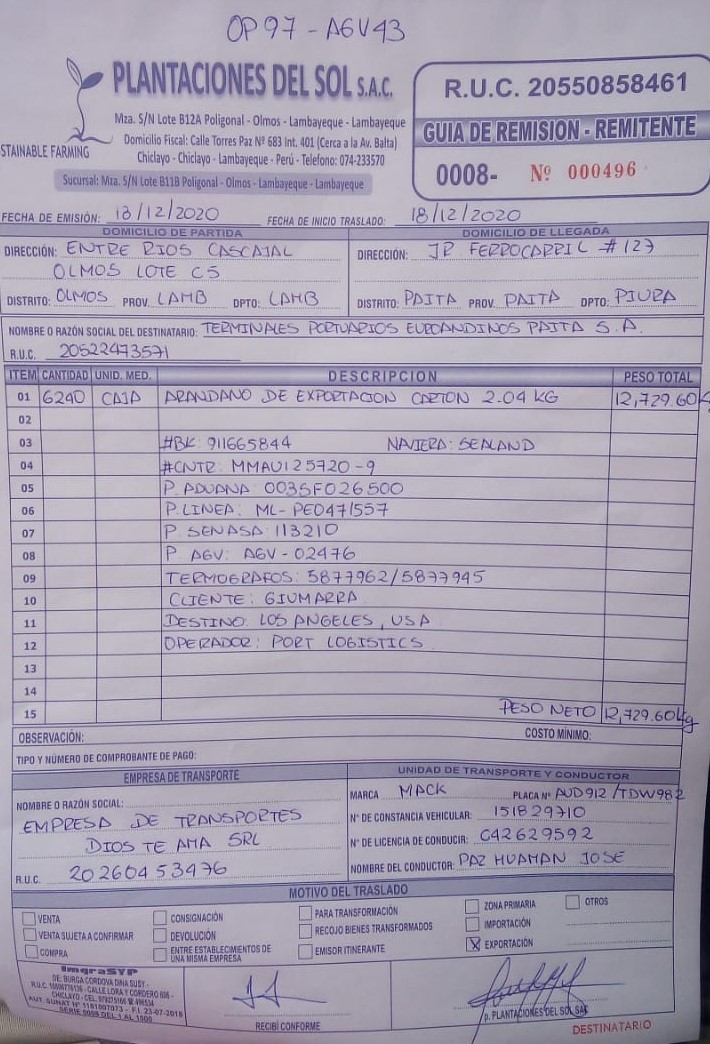 OP97 - AGV43
PLANTACIONES DEL SOL S.A.C.
Mza. S/N Lote B12A Poligonal - Olmos - Lambayeque - Lambayeque
Domicilio Fiscal: Calle Torres Paz Nº 683 Int. 401 (Cerca a la Av. Balta)
Chiclayo - Chiclayo - Lambayeque - Perú - Telefono: 074-233570
STAINABLE FARMING
Sucursal: Mza. S/N Lote B11B Poligonal - Olmos - Lambayeque - Lambayeque
R.U.C. 20550858461
GUIA DE REMISION - REMITENTE
0008- Nº 000496
FECHA DE EMISIÓN: 18/12/2020 FECHA DE INICIO TRASLADO: 18/12/2020
DOMICILIO DE PARTIDA DOMICILIO DE LLEGADA
DIRECCIÓN: ENTRE RIOS CASCAJAL DIRECCIÓN: JR FERROCARRIL #127
OLMOS LOTE C5
DISTRITO: OLMOS PROV. LAMB DPTO: LAMB DISTRITO: PAITA PROV. PAITA DPTO: PIURA
NOMBRE O RAZÓN SOCIAL DEL DESTINATARIO: TERMINALES PORTUARIOS EUROANDINOS PAITA S.A.
R.U.C. 20522473571
ITEM CANTIDAD UNID. MED. DESCRIPCION PESO TOTAL
01 6240 CAJA ARANDANO DE EXPORTACION CARTON 2.04 KG 12,729.60K
02
03 #BK: 911665844 NAVIERA: SEALAND
04 #CNTR: MMAU125720-9
05 P. ADUANA: 0035F026500
06 P. LINEA: ML-PE0471557
07 P SENASA: 113210
08 P AGV: AGV-02476
09 TERMOGRAFOS: 5877962/5877945
10 CLIENTE: GIUMARRA
11 DESTINO: LOS ANGELES, USA
12 OPERADOR: PORT LOGISTICS
13
14
15 PESO NETO 12,729.60kg
OBSERVACIÓN: COSTO MÍNIMO:
TIPO Y NÚMERO DE COMPROBANTE DE PAGO:
EMPRESA DE TRANSPORTE UNIDAD DE TRANSPORTE Y CONDUCTOR
NOMBRE O RAZÓN SOCIAL: EMPRESA DE TRANSPORTES
DIOS TE AMA SRL
R.U.C. 20260453476
MARCA MACK PLACA Nº AUD912/TDW982
Nº DE CONSTANCIA VEHICULAR: 151829710
Nº DE LICENCIA DE CONDUCIR: C42629592
NOMBRE DEL CONDUCTOR: PAZ HUAMAN JOSE
MOTIVO DEL TRASLADO
VENTA CONSIGNACIÓN PARA TRANSFORMACIÓN ZONA PRIMARIA OTROS
VENTA SUJETA A CONFIRMAR DEVOLUCIÓN RECOJO BIENES TRANSFORMADOS IMPORTACIÓN
COMPRA ENTRE ESTABLECIMIENTOS DE UNA MISMA EMPRESA EMISOR ITINERANTE X EXPORTACIÓN
ImgraSYP
DE: BURGA CORDOVA DINA SUSY -
CALLE LORA Y CORDERO
CHICLAYO - CEL.
AUT. SUNAT Nº F.I. 23-07-2018
SERIE 0008 DEL 1 AL 1500
RECIBÍ CONFORME
p. PLANTACIONES DEL SOL SAC
DESTINATARIO